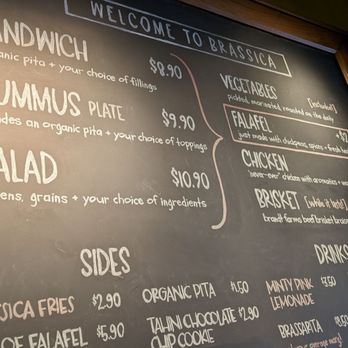 WELCOME TO BRASSICA
ANDWICH $8.90
anic pita + your choice of fillings
UMMUS PLATE $9.90
des an organic pita + your choice of toppings
ALAD $10.90
ens, grains + your choice of ingredients
VEGETABLES [included]
pickled, marinated, roasted on the daily
FALAFEL +$2
just made with chickpeas, spices + fresh
CHICKEN
'never-ever' chicken with aromatics +
BRISKET [while it lasts!]
brandt farms beef brisket
SIDES
SSICA FRIES $2.90
OF FALAFEL $5.90
ORGANIC PITA $1.50
TAHINI CHOCOLATE $2.90
CHIP COOKIE
DRINKS
MINTY PINK
LEMONADE
BRASSARITA